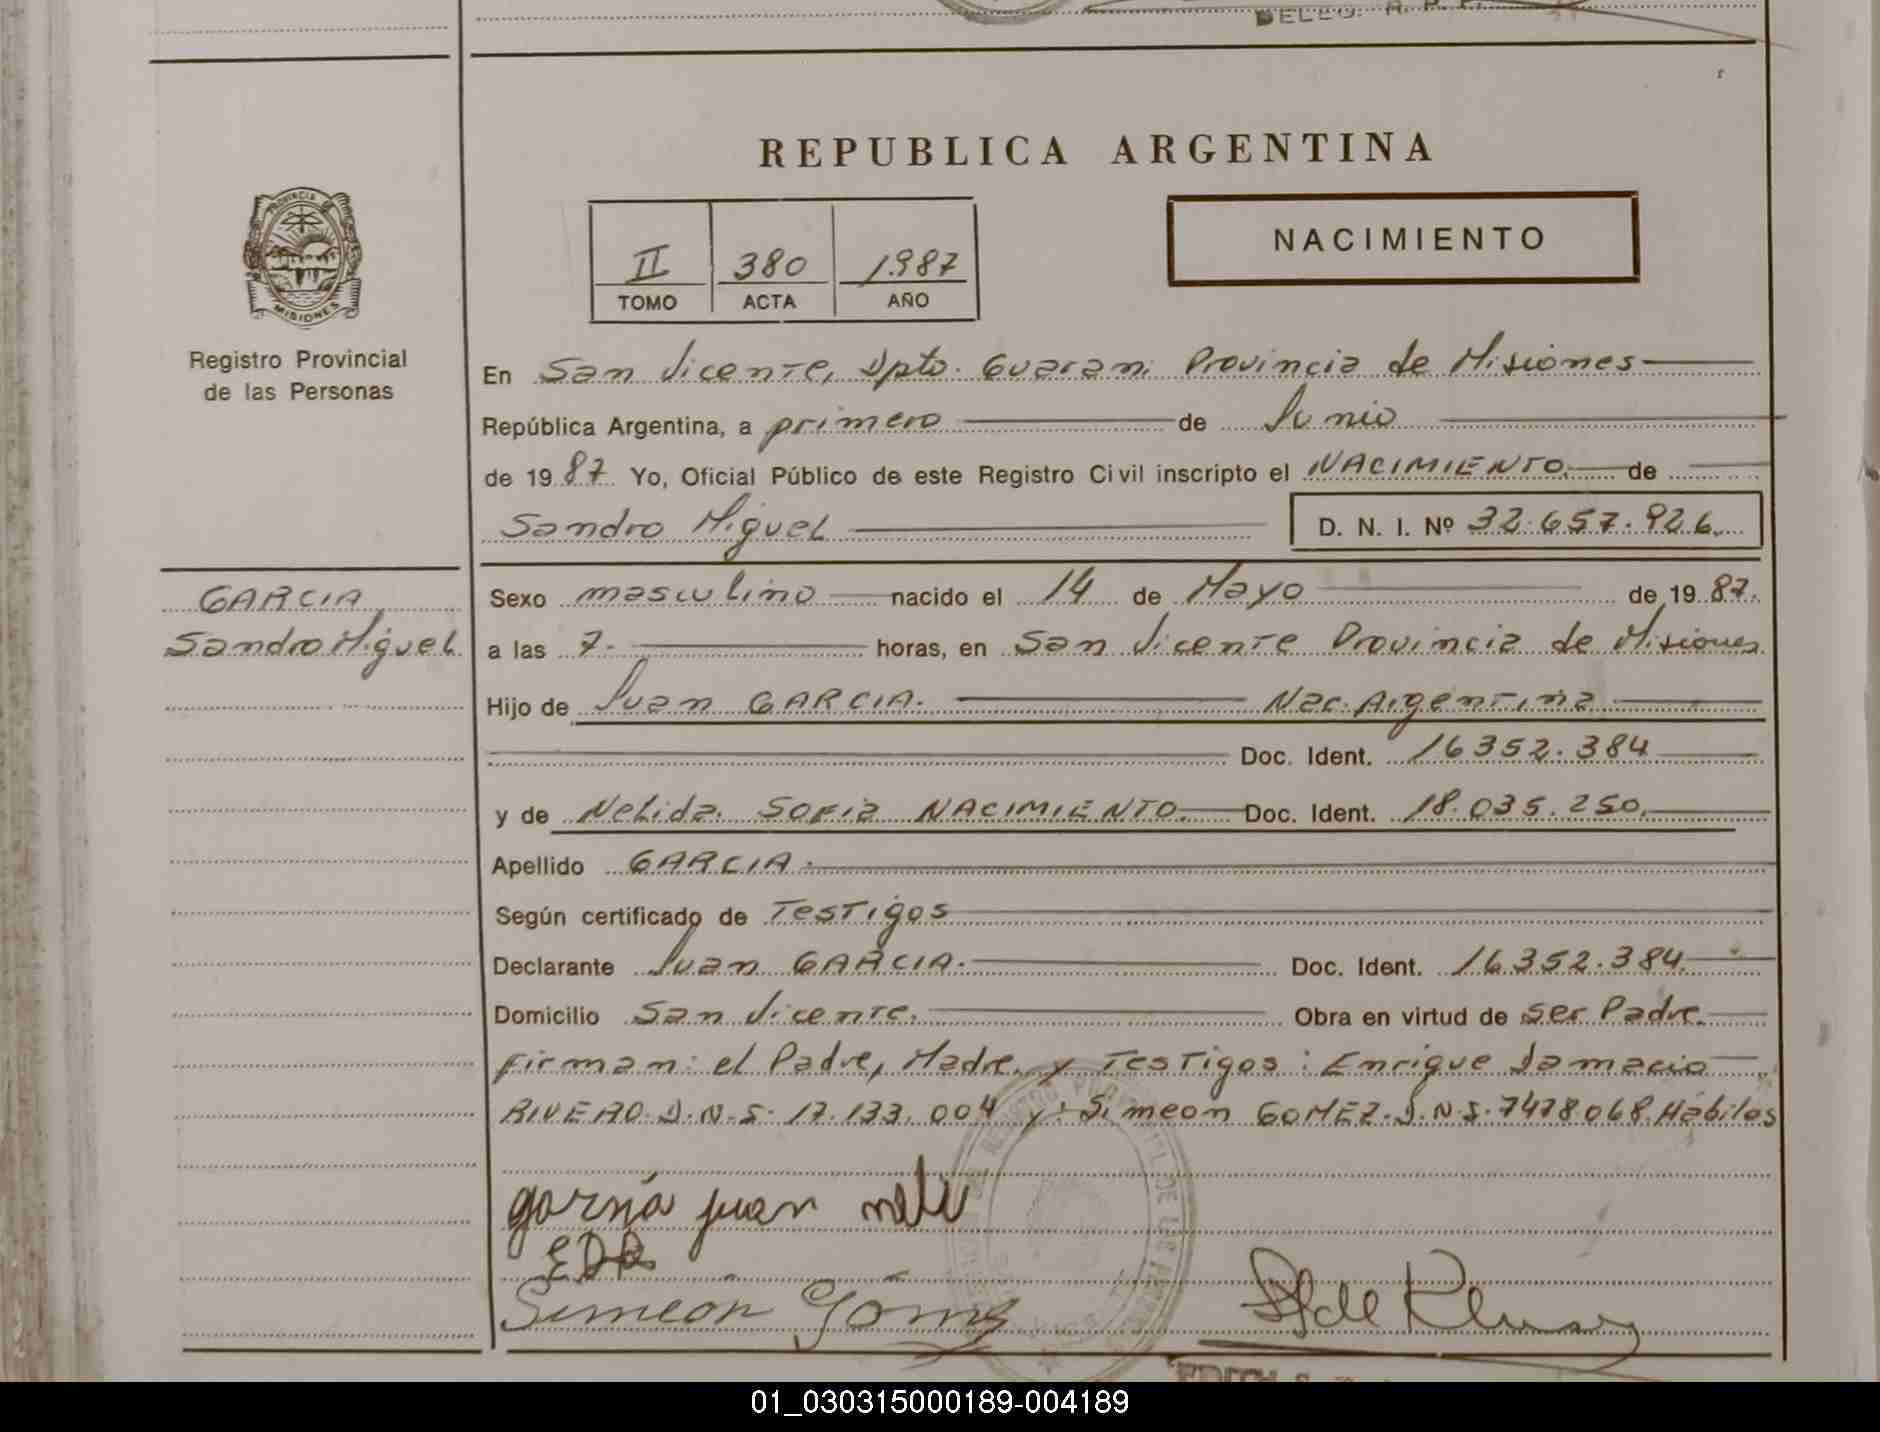 REPUBLICA ARGENTINA
PROVINCIA DE
MISIONES
II 380 1987
TOMO ACTA AÑO
NACIMIENTO
Registro Provincial
de las Personas
En San Vicente, Dpto. Guarani Provincia de Misiones
República Argentina, a primero de Junio
de 1987 Yo, Oficial Público de este Registro Civil inscripto el NACIMIENTO. de
Sandro Miguel D. N. I. Nº 32.657.926.
GARCIA
Sandro Miguel
Sexo masculino nacido el 14 de Mayo de 1987.
a las 7. horas, en San Vicente Provincia de Misiones
Hijo de Juan GARCIA. Nac. Argentina
Doc. Ident. 16352.384
y de Nelida Sofia NACIMIENTO. Doc. Ident. 18.035.250.
Apellido GARCIA.
Según certificado de Testigos
Declarante Juan GARCIA. Doc. Ident. 16.352.384.
Domicilio San Vicente. Obra en virtud de ser Padre.
Firman: el Padre, Madre y Testigos: Enrique Damacio
RIVERO. D.N.I. 17.133.004 y: Simeon GOMEZ. D.N.I. 7478068. Hábiles
juan
EDR
Simeón Gómez
01_030315000189-004189